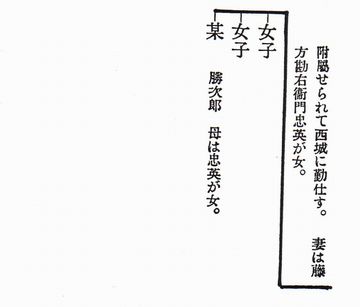 附屬せられて西城に勤仕す。 妻は藤
方勘右衞門忠英が女。
女子
女子
某
勝次郎 母は忠英が女。